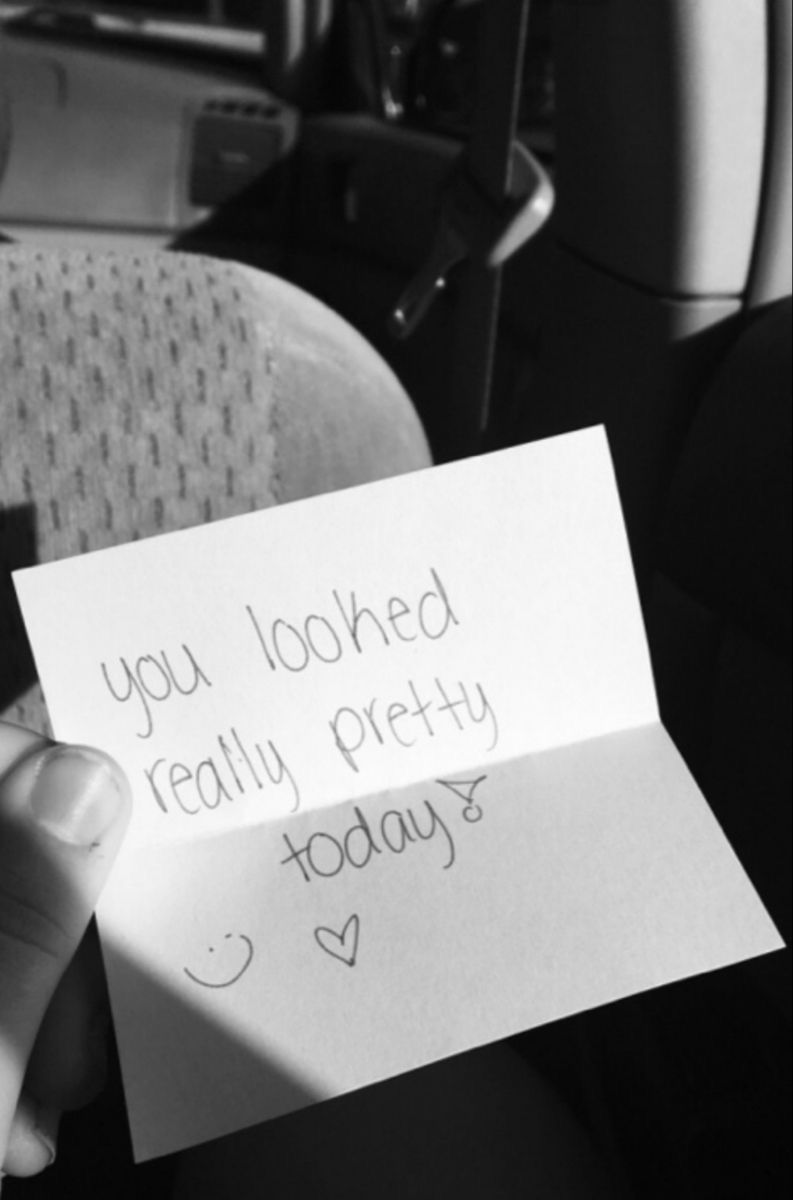 you looked
really pretty
today!